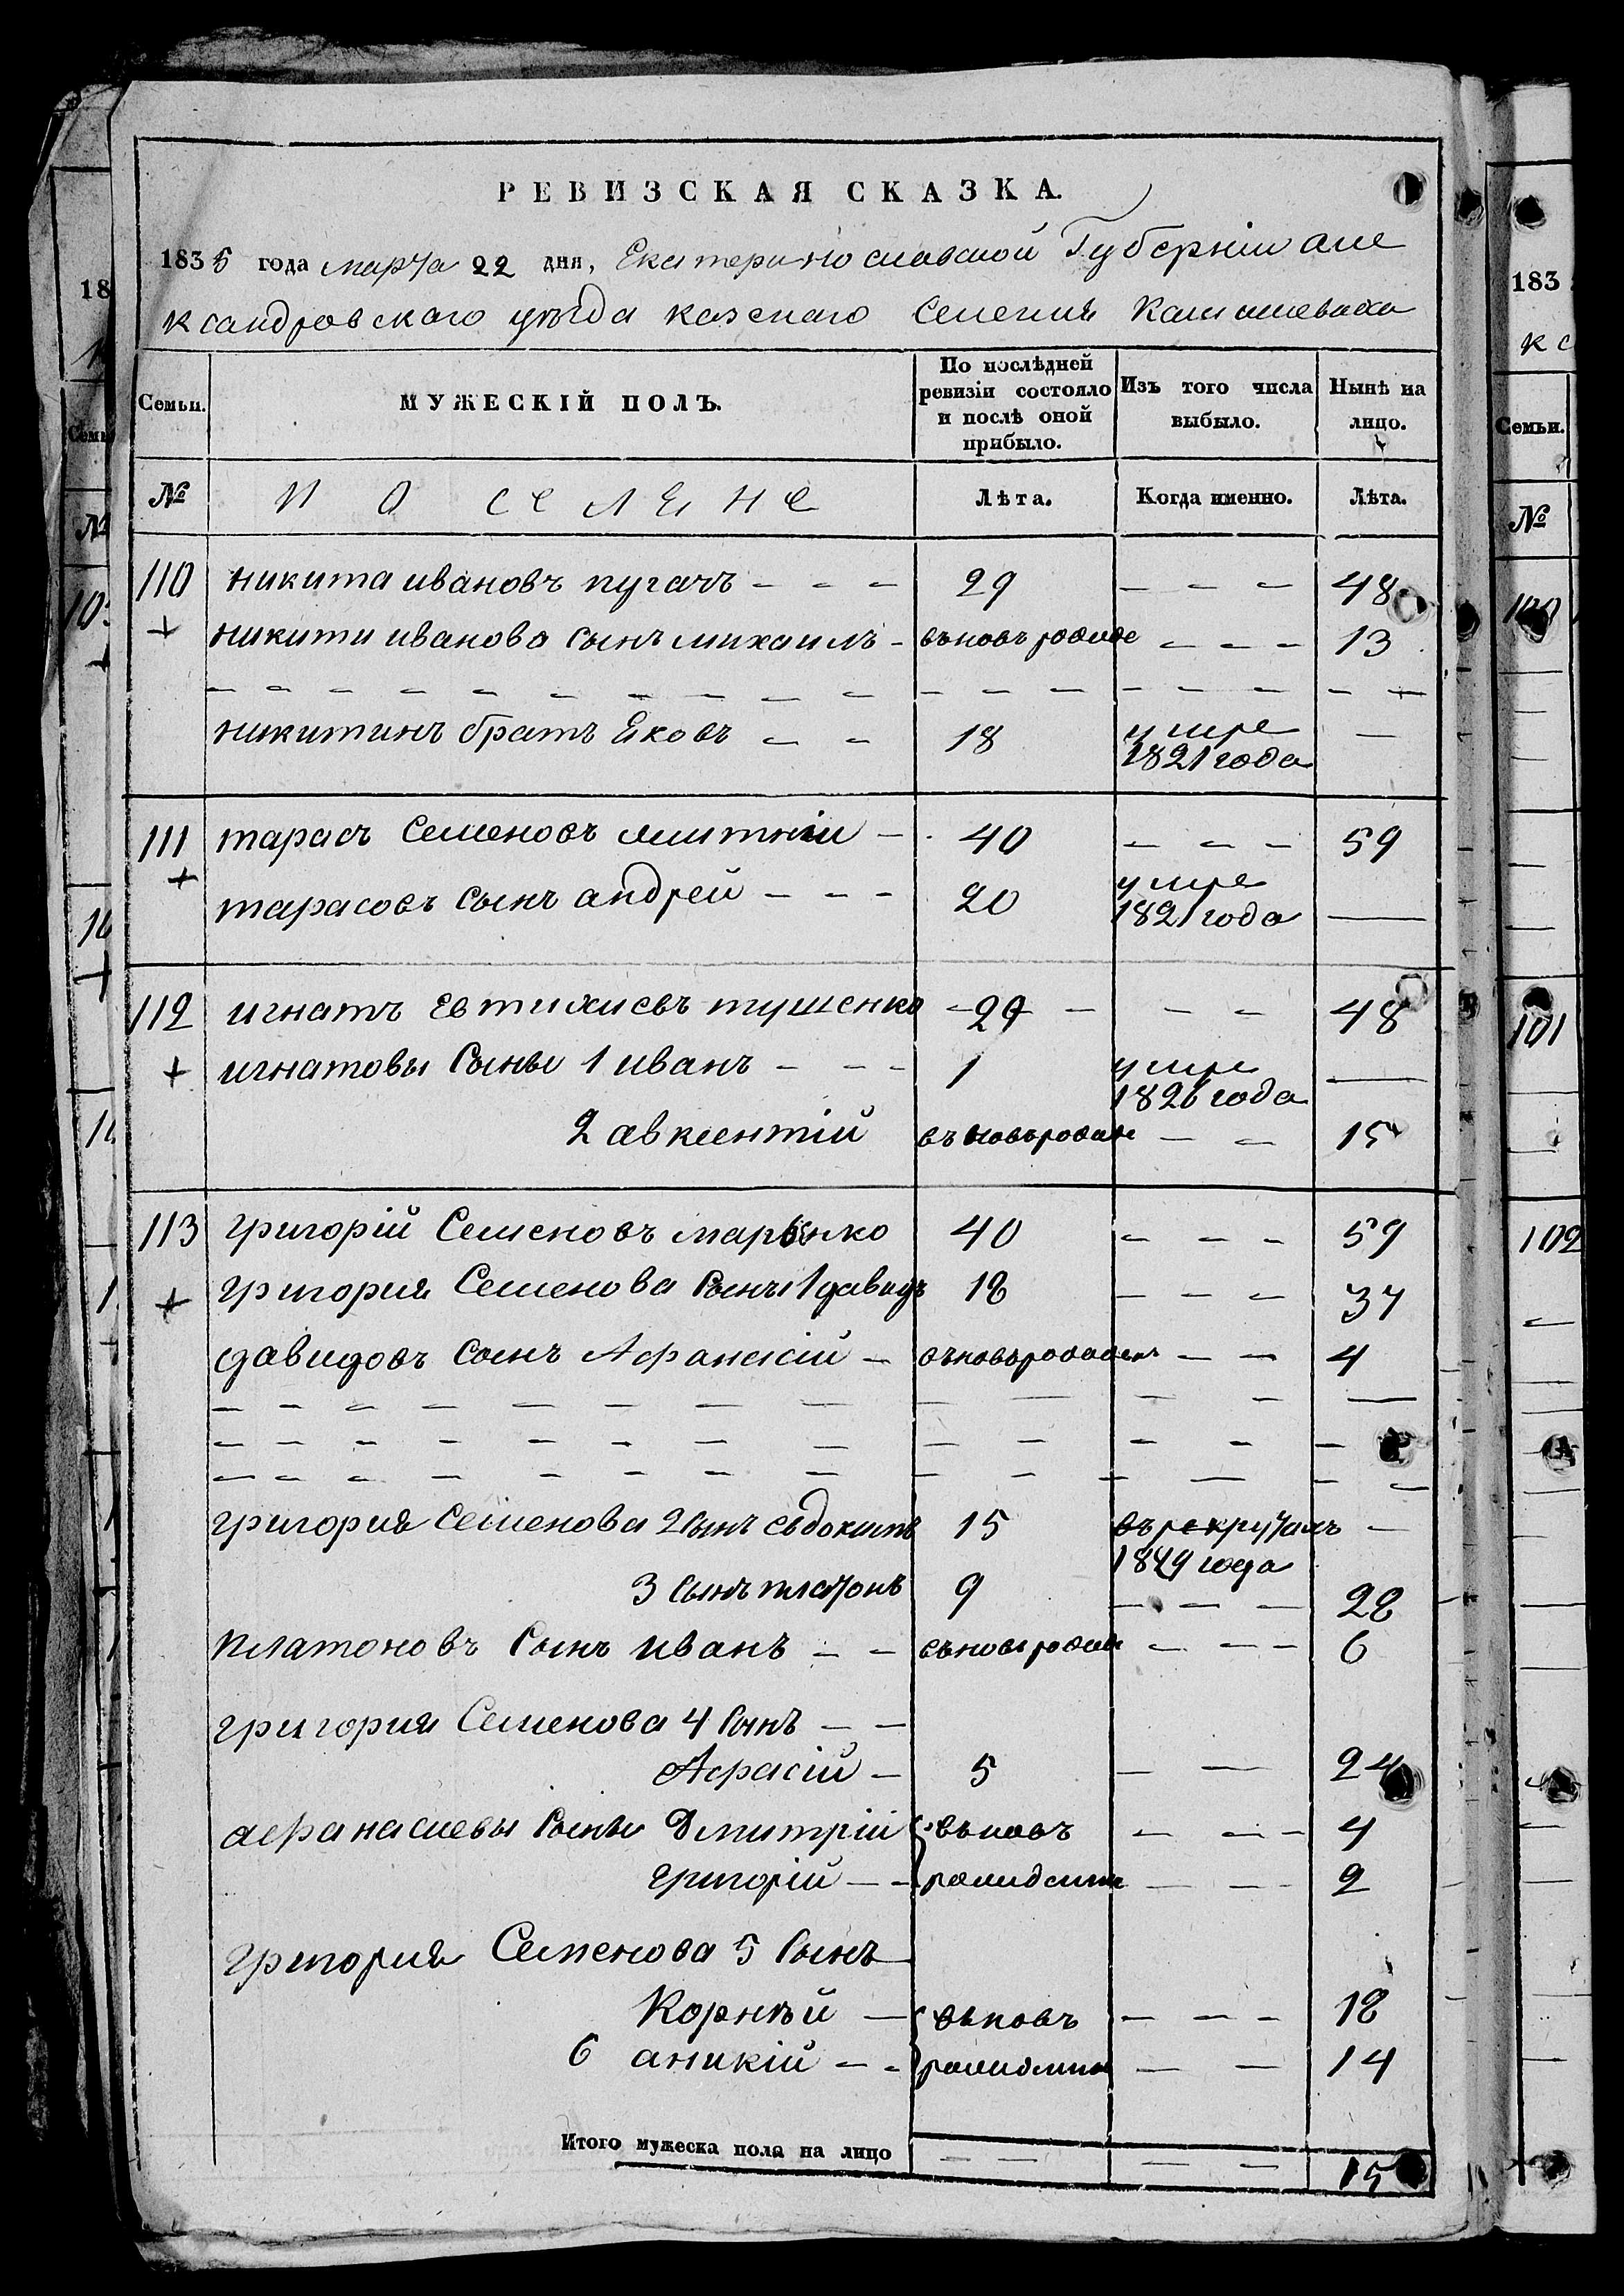 РЕВИЗСКАЯ СКАЗКА.
1835 года марта 22 дня, Екатеринославской Губерніи але
ксандровского уезда казенаго Селения Камышеваха
Семьи. МУЖЕСКІЙ ПОЛЪ. По послѣдней ревизіи состояло и послѣ оной прибыло. Изъ того числа выбыло. Нынѣ на лицо.
№ ПОСЕЛЕНЕ Лѣта. Когда именно. Лѣта.
110 никита ивановъ пугачъ – – – 29 – – – 48
+ никити иванова сынъ михаилъ – вьновъ – – – 13
никитинъ братъ Яковъ – – 18 умре 1821 года —
111 тарасъ Семеновъ – 40 – – – 59
+ тарасовъ сынъ андрей – – – 20 умре 1821 года —
112 игнатъ Евтихиевъ тушенко – 29 – – – 48
+ игнатовы сыны 1 иванъ – – – 1 умре 1826 года —
2 авксентій вьновъ – – 15
113 григорій Семеновъ марченко 40 – – – 59
+ григория Семенова сынъ 1 давидъ 18 – – – 37
давидовъ сынъ Афанасій – вьновъ – – 4
григория Семенова 2 сынъ евдокимъ 15 въ рекрутахъ 1829 года –
3 сынъ платонъ 9 – – – 28
платоновъ сынъ иванъ – – вьновъ – – – 6
григория Семенова 4 сынъ – –
Афасій – 5 – — 24
афанасиевы сыны Дмитрій вьновъ – – – 4
григорій – – – – 2
григория Семенова 5 сынъ
Корнѣй — вьновъ – – – 18
6 аникій – – — – 14
Итого мужеска пола на лицо – — — – 15
18
183
к с
Семьи.
№
100
101
102